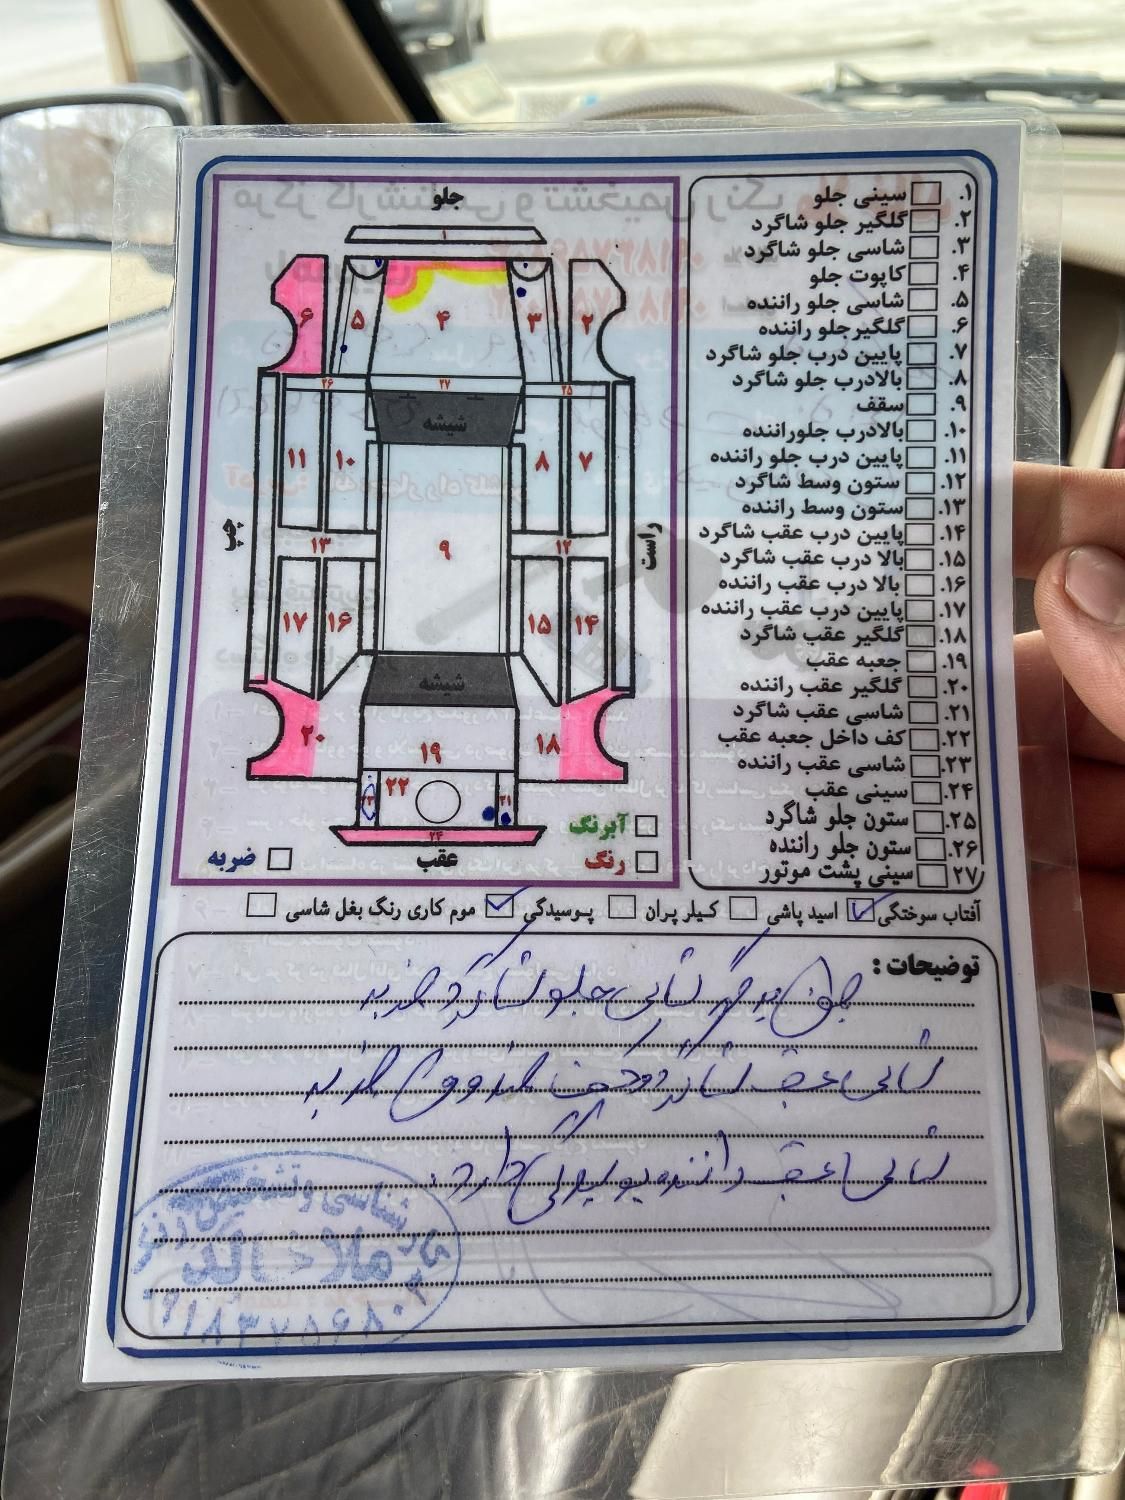 جلو
۱
۶
۵
۴
۳
۲
۲۶
۲۷
۲۵
شیشه
۱۱
۱۰
۸
۷
چپ
۱۳
۹
۱۲
راست
۱۷
۱۶
۱۵
۱۴
شیشه
۲۰
۱۹
۱۸
۲۳
۲۲
۲۱
۲۴
عقب
آبرنگ
رنگ
ضربه
۱. سینی جلو
۲. گلگیر جلو شاگرد
۳. شاسی جلو شاگرد
۴. کاپوت جلو
۵. شاسی جلو راننده
۶. گلگیرجلو راننده
۷. پایین درب جلو شاگرد
۸. بالادرب جلو شاگرد
۹. سقف
۱۰. بالادرب جلوراننده
۱۱. پایین درب جلو راننده
۱۲. ستون وسط شاگرد
۱۳. ستون وسط راننده
۱۴. پایین درب عقب شاگرد
۱۵. بالا درب عقب شاگرد
۱۶. بالا درب عقب راننده
۱۷. پایین درب عقب راننده
۱۸. گلگیر عقب شاگرد
۱۹. جعبه عقب
۲۰. گلگیر عقب راننده
۲۱. شاسی عقب شاگرد
۲۲. کف داخل جعبه عقب
۲۳. شاسی عقب راننده
۲۴. سینی عقب
۲۵. ستون جلو شاگرد
۲۶. ستون جلو راننده
۲۷. سینی پشت موتور
آفتاب سوختگی اسید پاشی کیلر پران پوسیدگی موم کاری رنگ بغل شاسی
توضیحات :
شاسی جلو شاگرد ضربه
شاسی عقب شاگرد و کف صندوق ضربه
شاسی عقب راننده پوسیدگی دارد.
کارشناسی و تشخیص رنگ
۰۹۱۸۳۷۵۶۸۰۳